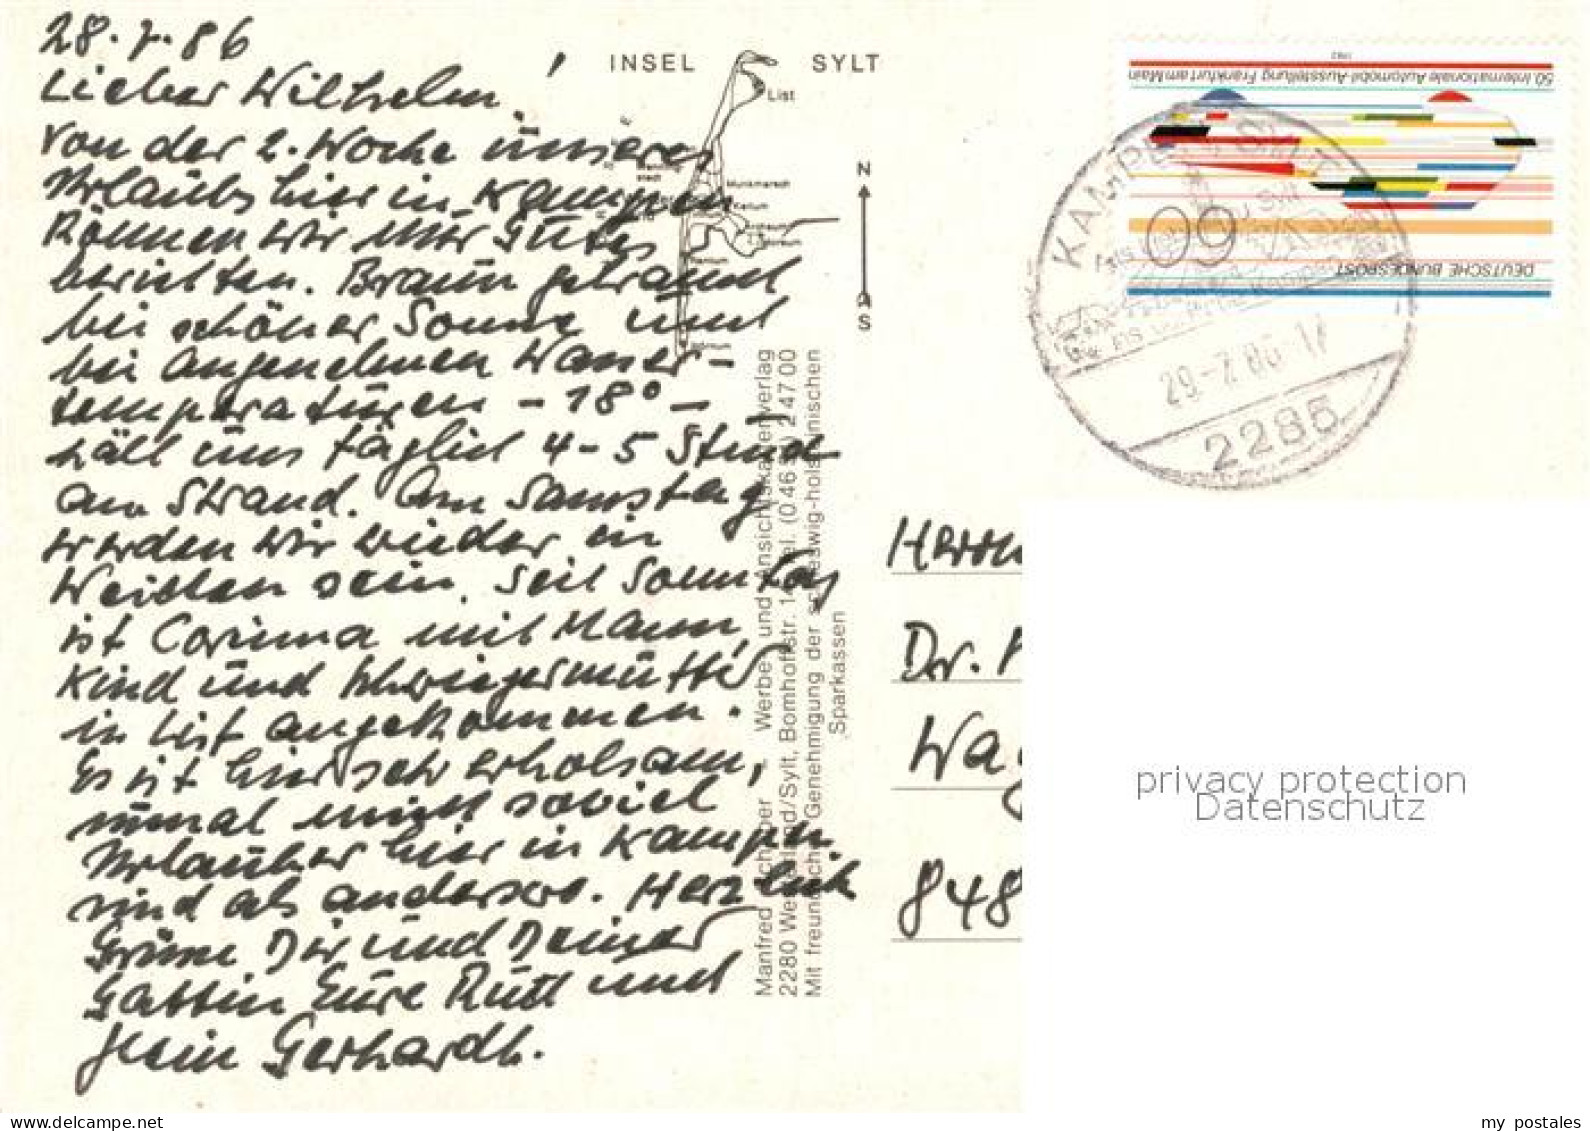 28.7.86
Lieber Wilhelm,
von der 2. Woche unseres
Urlaubs hier in Kampen
können wir nur Gutes
berichten. Braun gebrannt
bei schöner Sonne und
bei angenehmen Wasser-
temperaturen - 18° -
hält uns täglich 4-5 Stund
am Strand. Am Samstag
werden wir wieder in
Weiden sein. Seit Sonntag
ist Corinna mit Mann,
Kind und Schwiegermutter
in List angekommen.
Es ist hier sehr erholsam,
zumal nicht soviel
Urlauber hier in Kampen
sind als anderswo. Herzlich
Grüße Dir und Deiner
Gattin Eure Ruth und
Gerhardh.
INSEL SYLT
List
N
S
Manfred Schaper - Werbe- und Ansichtskartenverlag
2280 Westerland/Sylt, Bomhoffstr. Tel. (0 46 51) 2 47 00
Mit freundlicher Genehmigung der schleswig-holsteinischen
Sparkassen
50. Internationale Automobil-Ausstellung Frankfurt am Main
1982
60
DEUTSCHE BUNDESPOST
KAMPEN (SYLT)
29.-7.86-17
2285
Herrn
Dr.
Wa
848
privacy protection
Datenschutz
delcampe.net
my_postales